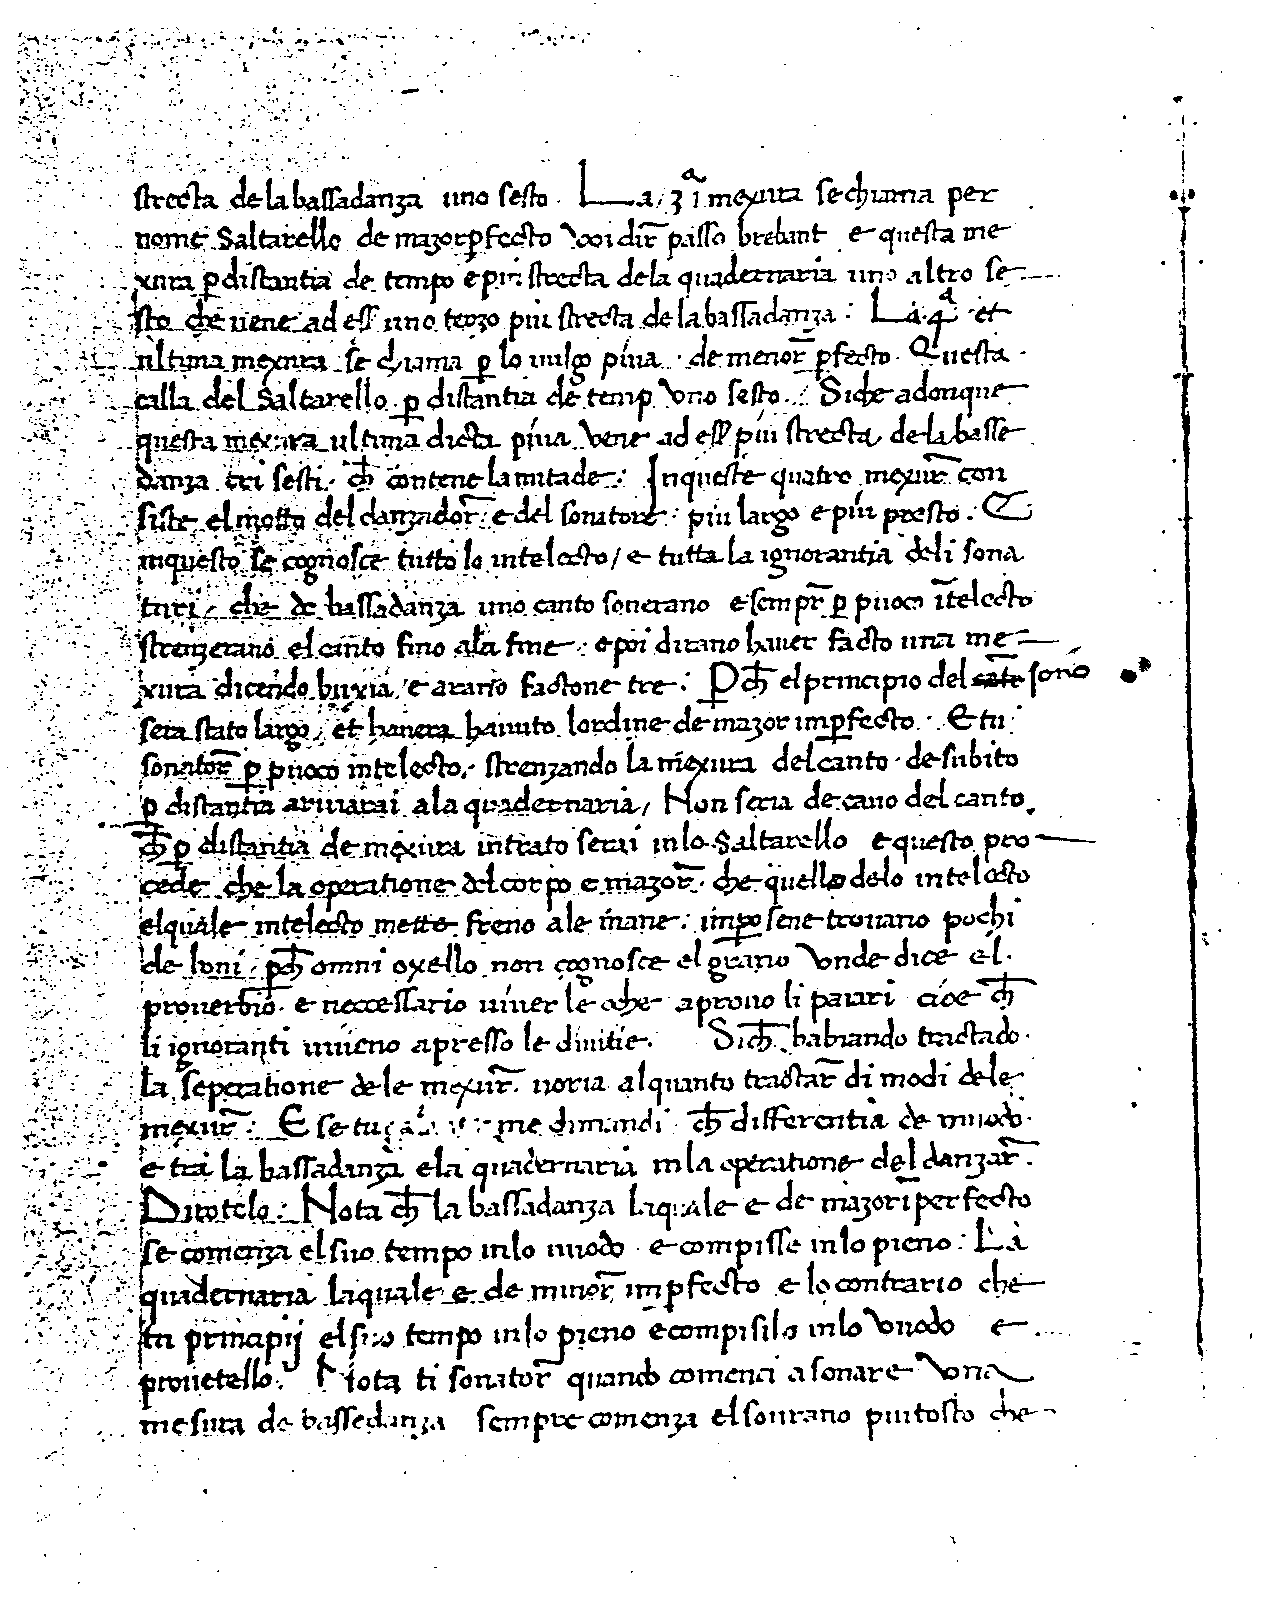 strecta de la bassadanza uno sesto. La 3ᵃ mexura se chiama per
nome Saltarello de mazor p̲fecto voi dir̄ passo brebant e questa me
xura p̲ distantia de tempo e piu strecta de la quadernaria uno altro se
sto che uene ad ess̄ uno terzo piu strecta de la bassadanza: La .qᵃ. et
ultima mexura se chiama p̲ lo uulgo piua . de menor̄ p̲fecto. Questa
calla del Saltarello p̲ distantia de temp̲ Vno sesto. Siche adonque
questa mexura ultima dicta piua Vene ad ess̄ piu strecta de la basse
danza tri sesti. ch̄ contene la mitade: In queste quatro mexur̄ con
siste el motto del danzador̄ e del sonatore: piu largo e piu presto. E
in questo se cognosce tutto lo intelecto / e tutta la ignorantia deli sona
turi, che de bassadanza uno canto sonerano e sempr̄ p̲ puoco ītelecto
strenzerano el canto fino ala fine: e poi dirano hauer facto una me
xura dicendo buxia, e arano factone tre: P̲ch̄ el principio del sono
sera stato largo, et hauera hauuto lordine de mazor imp̲fecto. E tu
sonator̄ p̲ puoco intelecto, strenzando la mexura del canto de subito
p̲ distantia ariuarai ala quadernaria, Non seria de cano del canto.
ch̄ p̲ distantia de mexura intrato serai in lo Saltarello e questo pro
cede che la operatione del corpo e mazor̄ che quello delo intelecto
el quale intelecto mette freno ale mane: imp̲o sene trouano pochi
de boni . p̲ch̄ omni oxello non cognosce el grano Vnde dice el
prouerbio. e neccessario uiuer le oche aprouo li pauari cioe ch̄
li ignoranti uiueno apresso le diuitie. Sich̄ habiando tractado
la seperatione de le mexur̄ uoria alquanto tractar̄ di modi dele
mexur̄: E se tu me dimandi ch̄ differentia de muodo
e tra la bassadanza e la quadernaria in la operatione del danzar̄.
Dirotelo: Nota ch̄ la bassadanza la quale e de mazor īperfecto
se comenza el suo tempo in lo uuodo . e compisse in lo pieno: La
quadernaria la quale e de minor̄ imp̲fecto e lo contrario che
tu principij el suo tempo in lo pieno e compisilo in lo Vuodo e
prouetello. Nota ti sonator̄ quando comenci a sonare Vna
mesura de bassedanza sempre comenza el sourano piu tosto che